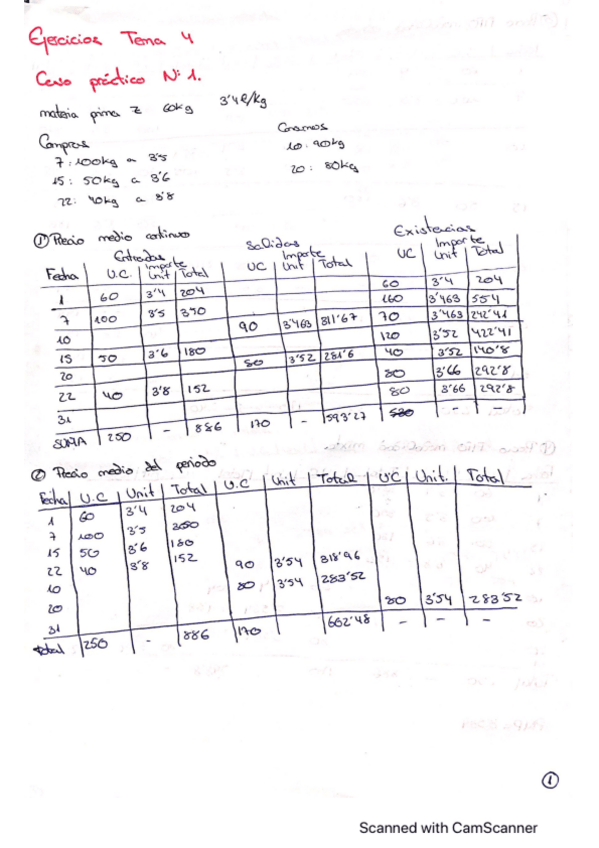 Ejercicios Tema 4
Caso práctico Nº 1.
materia prima Z 60kg 3'4€/kg
Compras
7: 100kg a 3'5
15: 50kg a 3'6
22: 40kg a 3'8
Consumos
10: 90kg
20: 80kg
① Precio medio continuo
Entradas Salidas Existencias
Fecha U.C. Importe Unit Total UC Importe Unit Total UC Importe Unit Total
1 60 3'4 204 60 3'4 204
7 100 3'5 350 160 3'463 554
10 90 3'463 311'67 70 3'463 242'41
15 50 3'6 180 120 3'52 422'41
20 80 3'52 281'6 40 3'52 140'8
22 40 3'8 152 80 3'66 292'8
31 80 3'66 292'8
SUMA 250 - 886 170 - 593'27 - -
② Precio medio del periodo
Fecha U.C Unit Total U.C Unit Total UC Unit. Total
1 60 3'4 204
7 100 3'5 350
15 50 3'6 180
22 40 3'8 152
10 90 3'54 318'96
20 80 3'54 283'52
31 80 3'54 283'52
total 250 - 886 170 602'48 - - -
①
Scanned with CamScanner